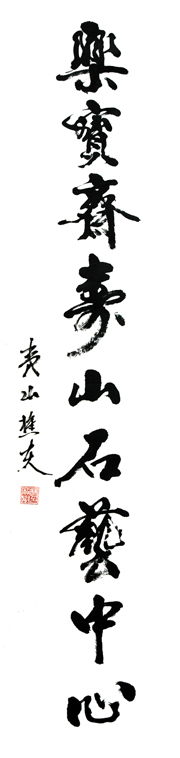 樂寳齋壽山石藝中心
夷山樵夫